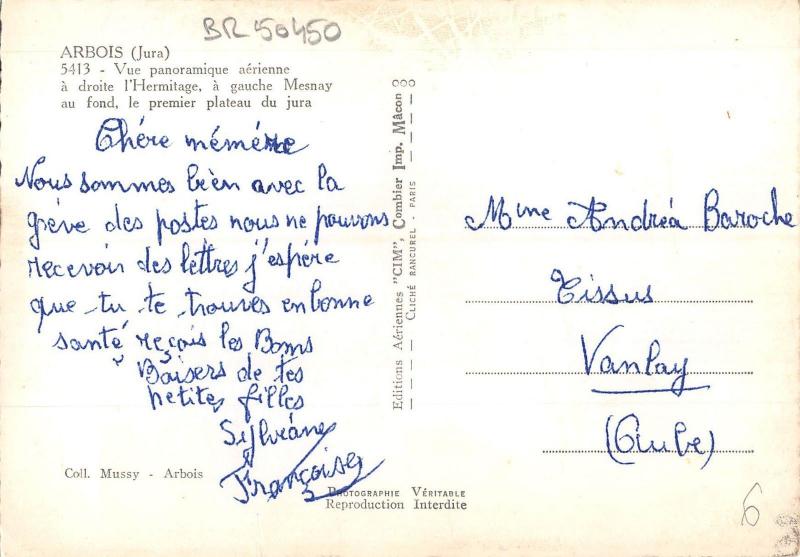 BR50450
ARBOIS (Jura)
5413 - Vue panoramique aérienne
à droite l'Hermitage, à gauche Mesnay
au fond, le premier plateau du jura
Chére mémére
Nous sommes bien avec la
grève des postes nous ne pouvons
recevoir des lettres j'espére
que tu te trouves en bonne
santé reçois les Bons
Baisers de tes
petites filles
Sylviane
Françoise
Coll. Mussy - Arbois
Editions Aériennes "CIM", Combier Imp. Mâcon
CLICHÉ RANCUREL - PARIS
PHOTOGRAPHIE VÉRITABLE
Reproduction Interdite
Mme Andréa Baroche
Tissus
Vanlay
(Aube)
6